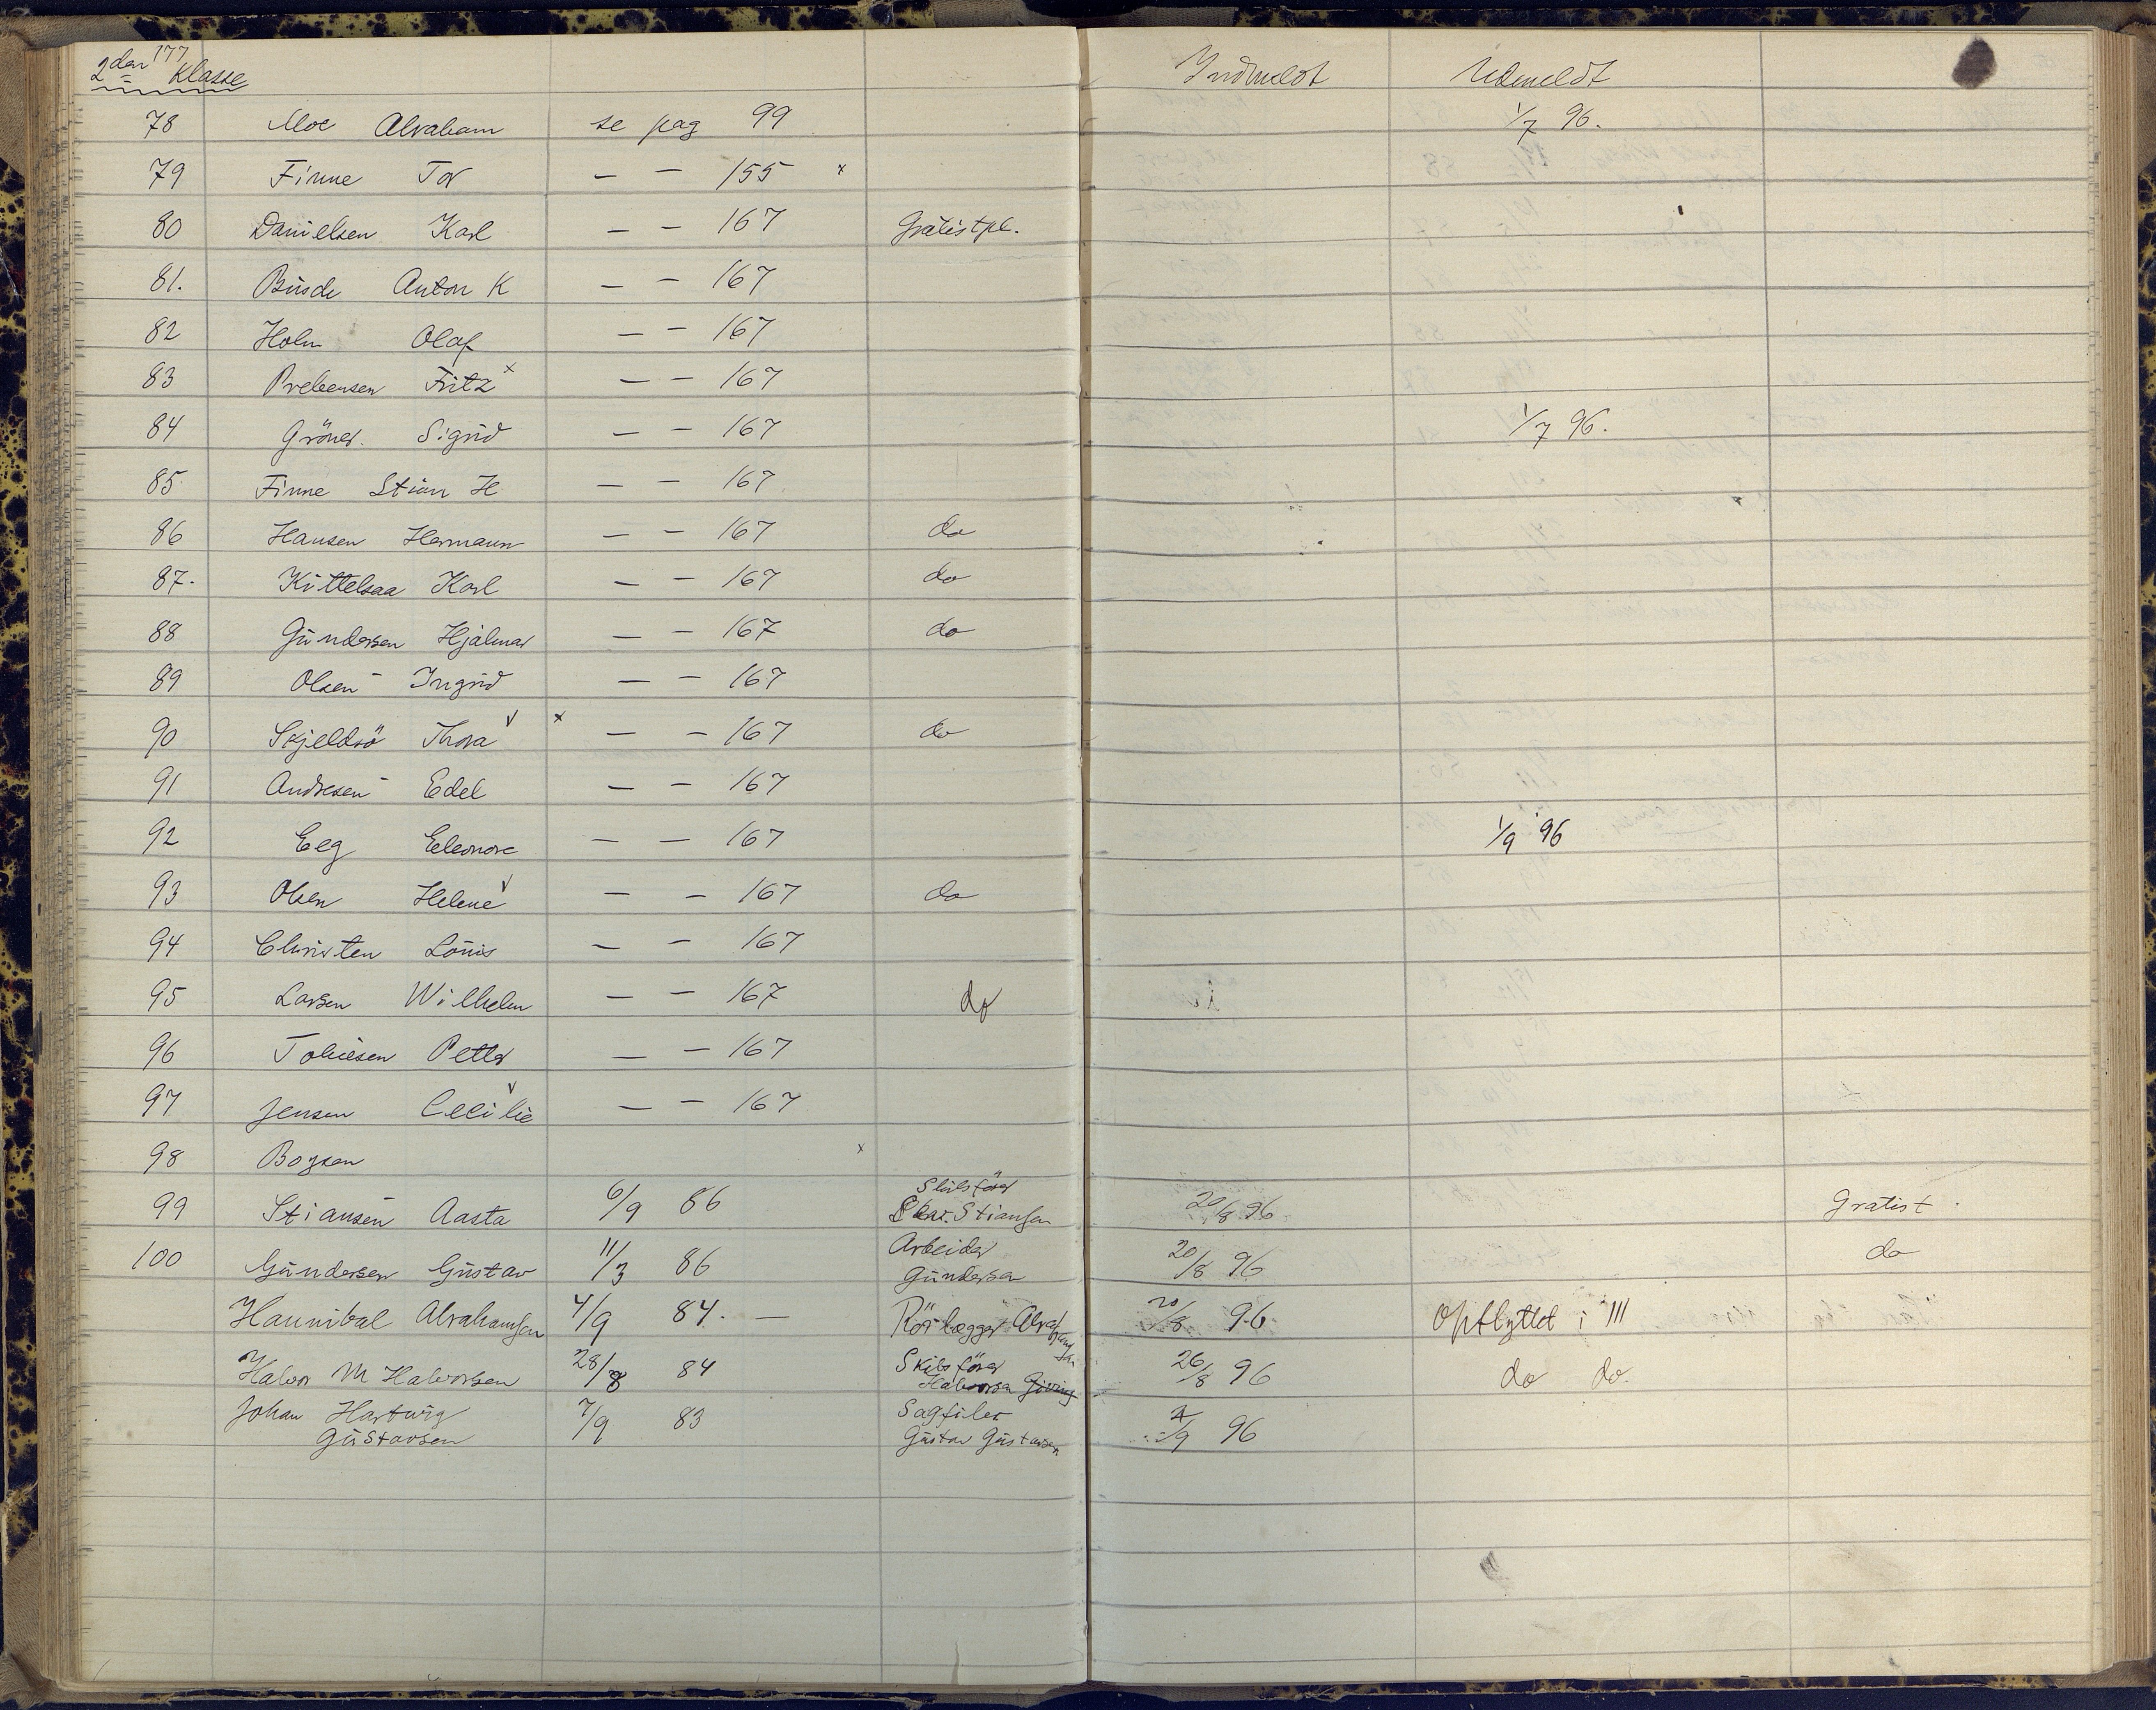 177
2den Klasse Indmeldt Udmeldt
78 Moe Abraham se pag 99 1/7 96.
79 Finne Tor — — 155 x
80 Danielsen Karl — — 167 Gratistpl.
81. Anton K — — 167
82 Holm Olaf — — 167
83 Prebensen Fritz x — — 167
84 Gröner. Sigrid — — 167 1/7 96.
85 Finne Stian H — — 167
86 Hansen Hermann — — 167 do
87. Kittelsaa Karl — — 167 do
88 Gundersen Hjalmar — — 167 do
89 Olsen Ingrid — — 167
90 Skjeldsö Thora v x — — 167 do
91 Andresen Edel — — 167
92 Eeg Eleonore — — 167 1/9 96
93 Olsen Helene v — — 167 do
94 Christen Louis — — 167
95 Larsen Wilhelm — — 167 do
96 Tobiesen Petter — — 167
97 Jensen Cecilie v — — 167
98 Boysen x
99 Stiansen Aasta 6/9 86 Skibsförer Stiansen 20/8 96 Gratist
100 Gundersen Gustav 11/3 86 Arbeider Gundersen 20/8 96 do
Hannibal Abrahamsen 4/9 84. — Rörlægger Abrahamsen 20/8 96 Opflyttet i III
Halvor M Halvorsen 28/8 84 Skibsförer Halvorsen Giving 26/8 96 do do.
Johan Hartwig Gustavsen 7/9 83 Sagfiler Gustav Gustavsen /9 96